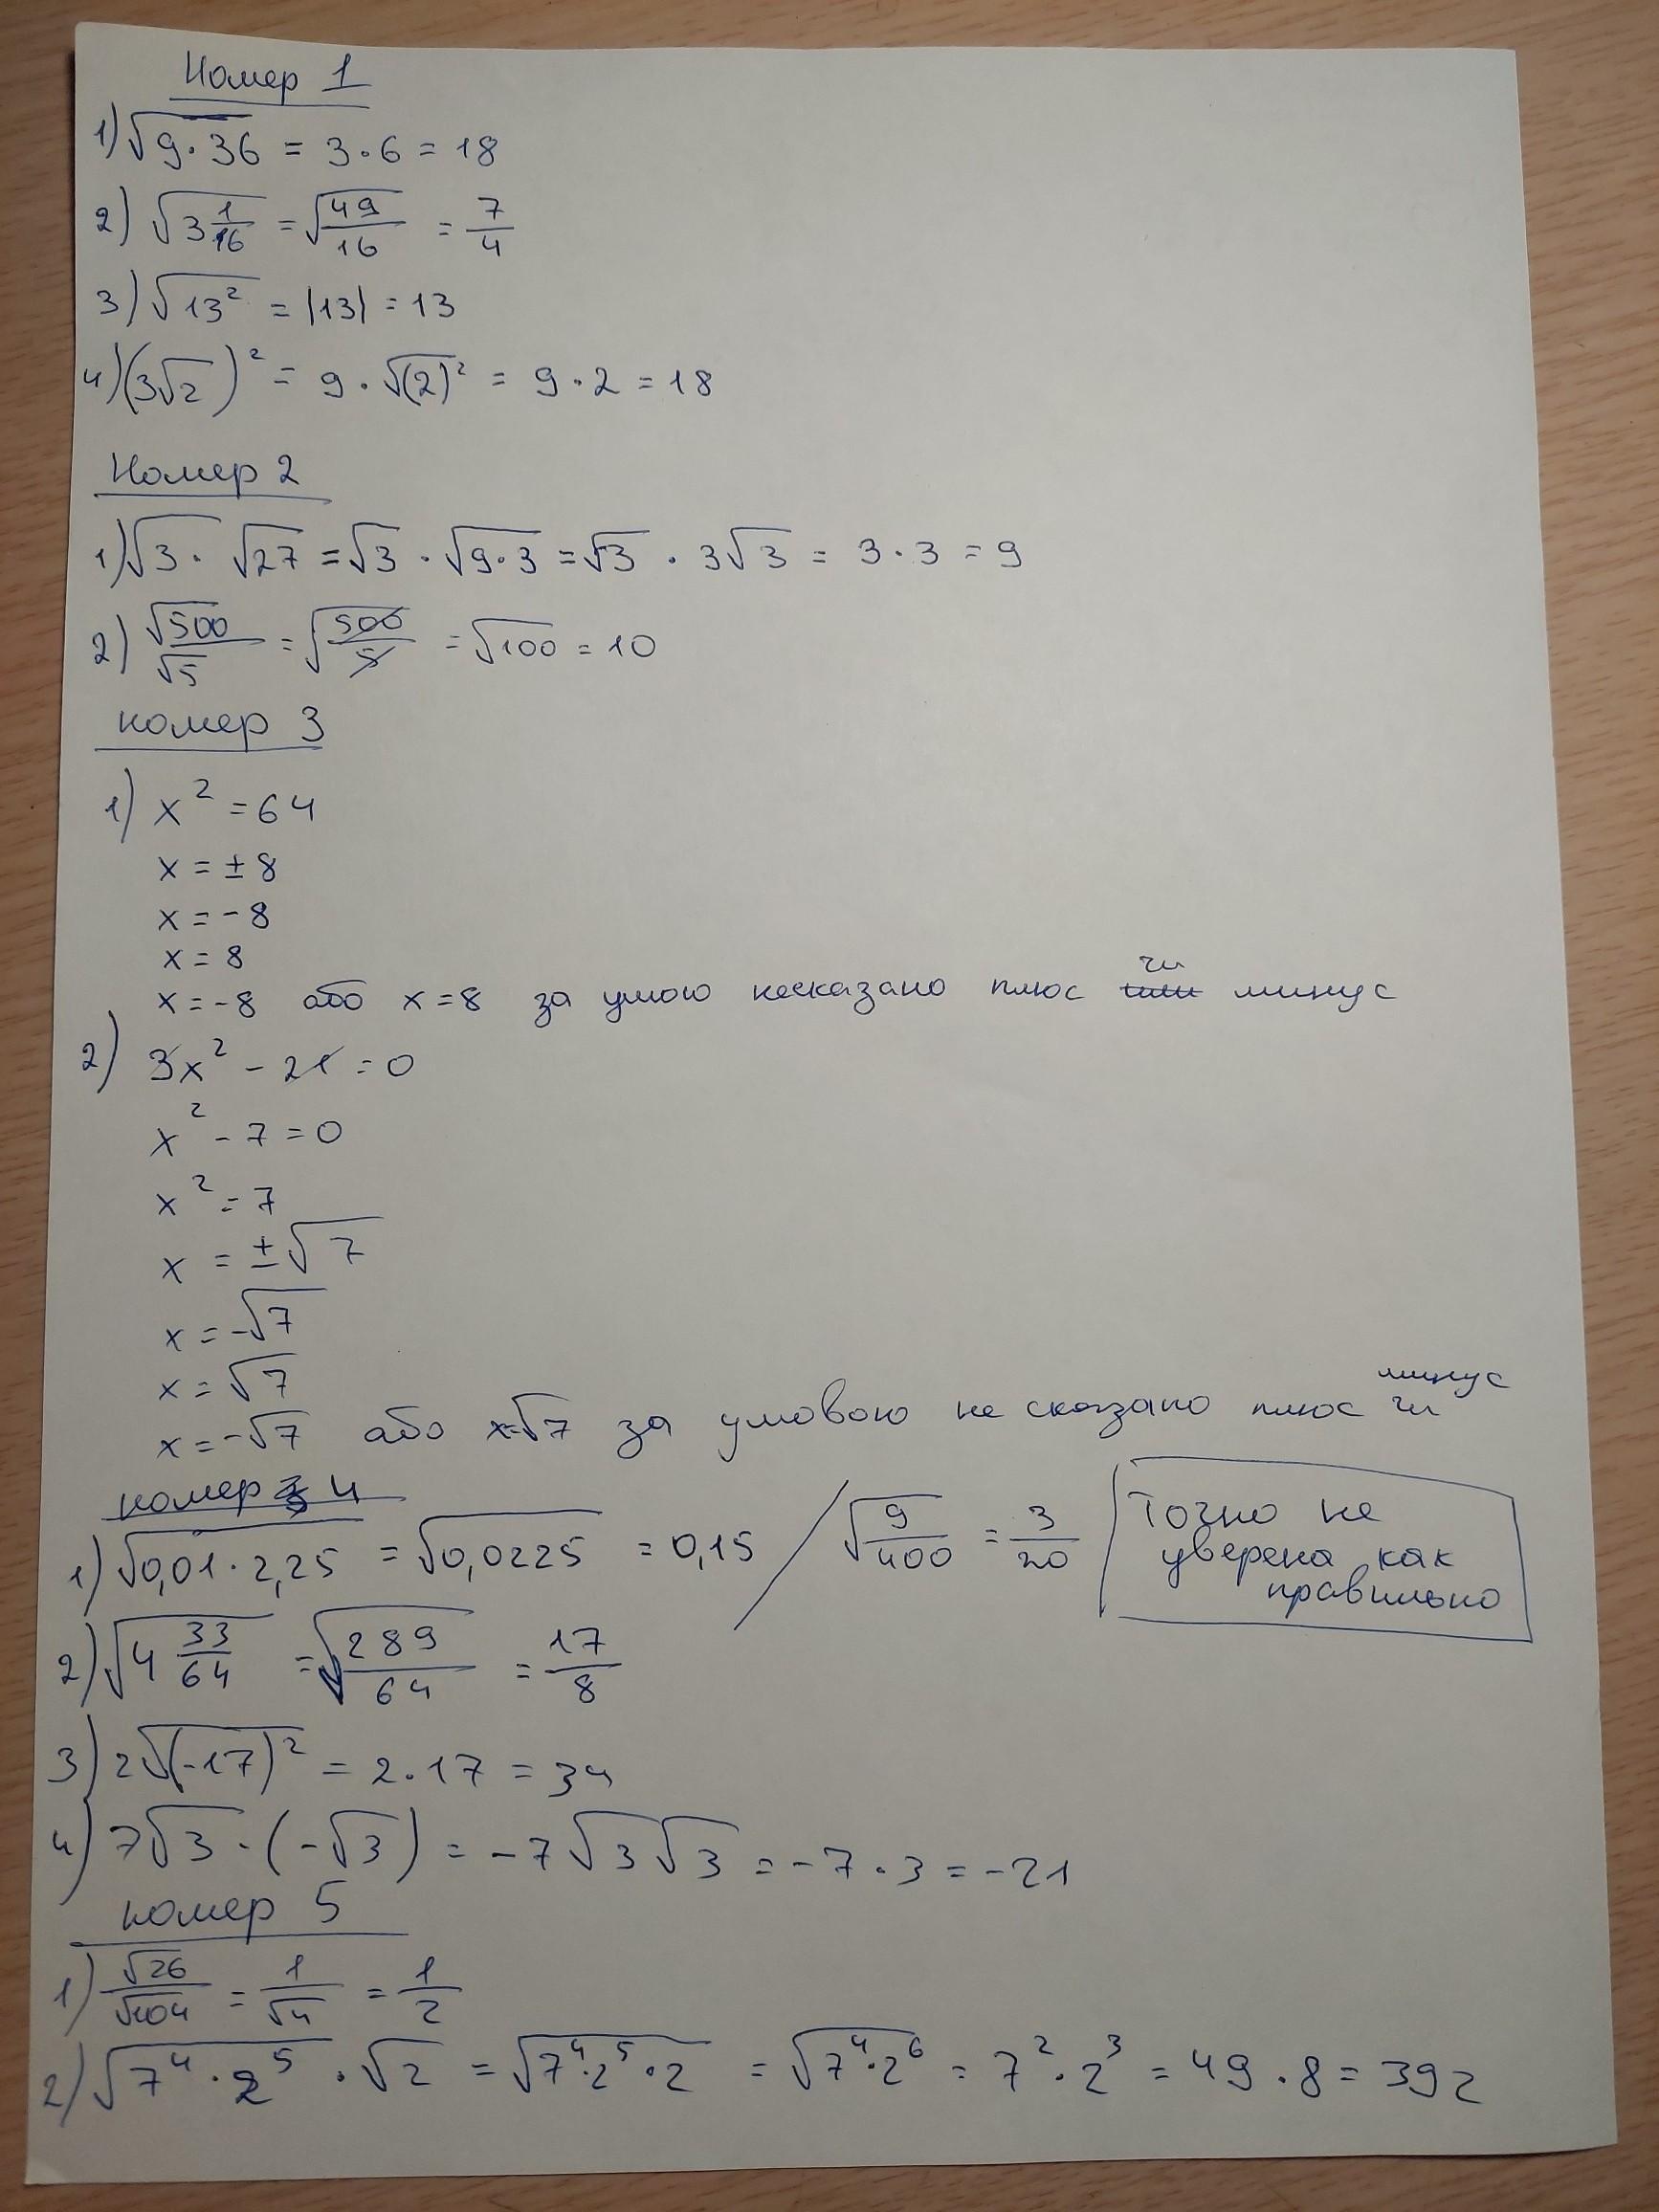 Номер 1
1) √9·36 = 3·6 = 18
2) √3 1/16 = √49/16 = 7/4
3) √13² = |13| = 13
4) (3√2)² = 9·√(2)² = 9·2 = 18
Номер 2
1) √3 · √27 = √3 · √9·3 = √3 · 3√3 = 3·3 = 9
2) √500/√5 = √500/5 = √100 = 10
номер 3
1) x² = 64
x = ±8
x = -8
x = 8
x = -8 або x = 8 за умою несказано плюс чи минус
2) 3x² - 21 = 0
x² - 7 = 0
x² = 7
x = ±√7
x = -√7
x = √7
x = -√7 або x=√7 за умовою не сказано плюс чи минус
номер 4
1) √0,01·2,25 = √0,0225 = 0,15 / √9/400 = 3/20
Точно не
уверена как
правильно
2) √4 33/64 = √289/64 = 17/8
3) 2√(-17)² = 2·17 = 34
4) 7√3·(-√3) = -7√3√3 = -7·3 = -21
номер 5
1) √26/√104 = 1/√4 = 1/2
2) √7⁴·2⁵ · √2 = √7⁴·2⁵·2 = √7⁴·2⁶ = 7²·2³ = 49·8 = 392